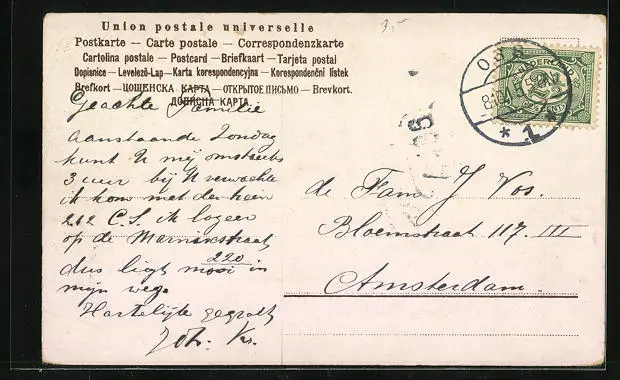 Union postale universelle
Postkarte — Carte postale — Correspondenzkarte
Cartolina postale — Postcard — Briefkaart — Tarjeta postal
Dopisnice — Levelező-Lap — Karta korespondencyjna — Korespondenční listek
Brefkort — ЦОЩЕНСКА КАРТА — ОТКРЫТОЕ ПИСЬМО — Brevkort.
ДОПИСНА КАРТА
Geachte Familie
Aanstaande Zondag
kunt U mij omstreeks
3 uur bij U verwachte
ik kom met den trein
212 C.S. ik logeer
op de Marnixstraat
220
dus ligt mooi in
mijn weg.
Hartelijke gegroet
Joh. Vos.
de Fam J Vos.
Bloemstraat 117. III
Amsterdam.
OSS
1
NEDERLAND
2½